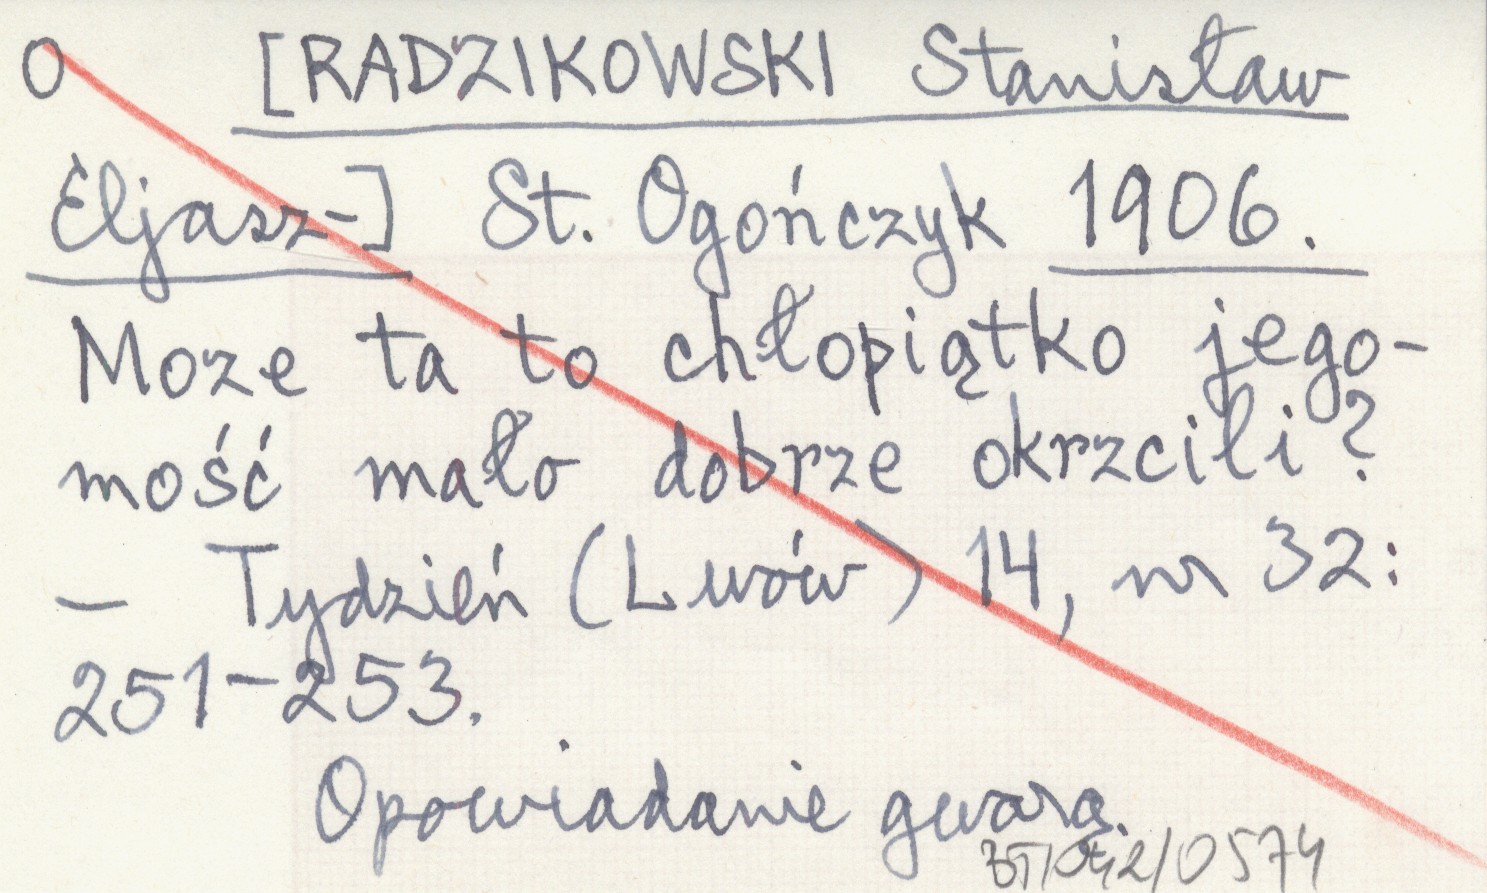 O [RADZIKOWSKI Stanisław
Eljasz-] St. Ogończyk 1906.
Moze ta to chłopiątko jego-
mość mało dobrze okrzcili?
— Tydzień (Lwów) 14, nr 32:
251-253.
Opowiadanie gwarą.
BT/042/0574